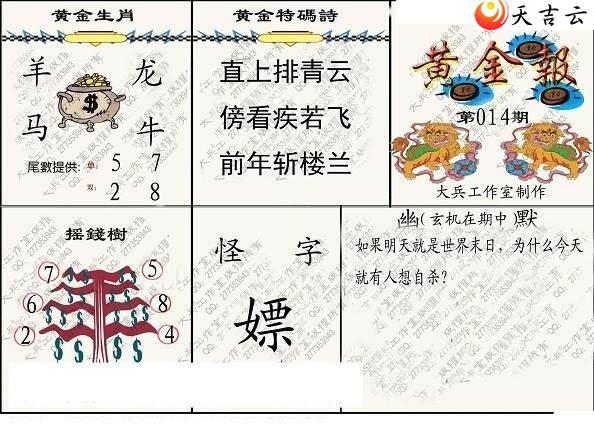 天吉云
黄金生肖
羊 龙
马 牛
$
尾數提供: 单: 5 7
双: 2 8
黄金特碼詩
直上排青云
傍看疾若飞
前年斩楼兰
黄金報
第014期
大兵工作室制作
摇錢樹
7 5
6 8
2 4
怪 字
嫖
幽(玄机在期中)默
如果明天就是世界末日，为什么今天
就有人想自杀?